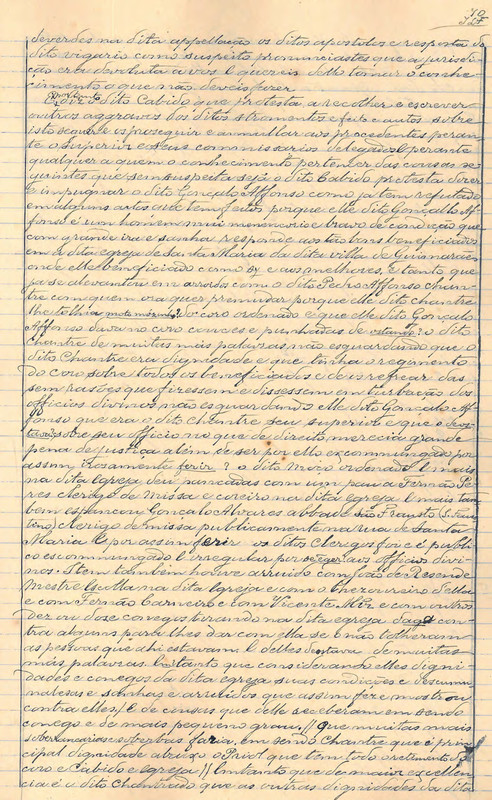 deverdes na dita appellação os ditos apostolos e resposta do
dito vigario como suspeito pronunciastes que a jurisdi-
ção era devoluta a vos e quereis dello tomar o conhe-
cimento o que não deveis fazer
dito Cabido que protesta, a recolher e escrever
outros aggravos dos ditos stromentos e feito e autos sobre
isto e proseguir e annullar aos procedentes peran-
te o superior e seus commissarios delegados e perante
qualquer a quem o conhecimento pertencer das cousas se-
guintes que sem suspeita seja o dito Cabido protesta dizer
e impugnar o dito Gonçalo Affonso como já tem refutado
em alguns artos que tem feitos porque elle dito Gonçallo Af-
fonso é um homem mui e bravo de condição que
com grande ira e sanha responde aos tão bons beneficiados
em a dita egreja de Santa Maria da dita villa de Guimarães
onde elle beneficiado é como by e aos melhores, e tanto que
já se alevantou em arroidos com o dito Pedro Affonso chan-
tre com quem ora quer premudar porque elle dito chantre
lhe tolhia do coro ordenado e que elle dito Gonçalo
Affonso dava no coro couces e punhadas de ? o dito
chantre de muitas más palavras, não esguardando que o
dito Chantre era dignidade e que tinha o regimento
do coro sobre todos os beneficiados e de os refrear das
sem rasões que fizessem e dissessem em turbação dos
officios divinos, não esguardando elle dito Gonçalo Af-
fonso que era o dito chantre seu superior e que o
sobre seu officio no que de direito, merecia grande
pena de justiça alem de ser por ello excommungado por
assim irosamente ferir ? o dito moço ordenado E mais
na dita Egreja deu pancadas com um pau a Fernão Pe-
res Clerigo de Missa e coreiro na dita egreja E mais tam
bem espancou Gonçalo Alvares abbade São Frausto (S. Faus-
tino) Clerigo de missa publicamente na rua de Santa
Maria E por assim ferir os ditos Clerigos foi e é publi
co escommungado e irregular por aos officios divi-
nos. Item tambem houve arruido com João de Resende
Mestre Escolla na dita Egreja e com o thezoureiro della
e com Fernão Carneiro e com Vicente e com outros
dez ou dose conegos tirando na dita egreja daga con
tra alguns para lhes dar com ella se o não tolheram
as pessoas que ahi estavam E delles de muitas
más palavras tanto que considerando elles digni-
dades e conegos da dita egreja suas condições e
e sanhas e arruidos que assim fez e mostrou
contra elles/ E de cousas que delle receberam em sendo
conego e de mais pequeno grau. // Que muitas mais
e soberbas faria, em sendo Chantre que é prin
cipal dignidade abaixo o Priol que tem todo o regimento do
coro e Cabido e egreja // Emtanto que de maior excellen
cia é o dito chantrado que as outras dignidades da dita